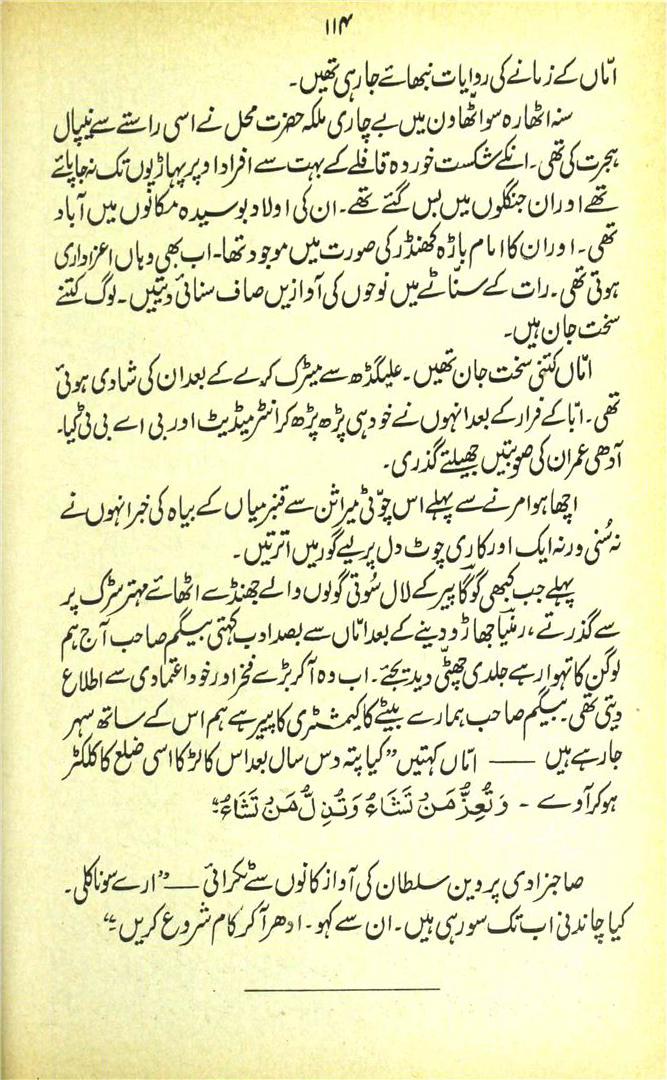 ۱۱۴
امّاں کے زمانے کی روایات نبھائے جارہی تھیں۔
سنہ اٹھارہ سو اٹھاون میں بے چاری ملکہ حضرت محل نے اسی راستے سے نیپال
ہجرت کی تھی۔ انکے شکست خوردہ قافلے کے بہت سے افراد اوپر پہاڑیوں تک نہ جاپائے
تھے اور ان جنگلوں میں بس گئے تھے۔ ان کی اولاد بوسیدہ مکانوں میں آباد
تھی۔ اور ان کا امام باڑہ کھنڈر کی صورت میں موجود تھا۔ اب بھی وہاں اعزاداری
ہوتی تھی۔ رات کے سنّاٹے میں نوحوں کی آوازیں صاف سنائی دیتیں۔ لوگ کتنے
سخت جان ہیں۔
امّاں کتنی سخت جان تھیں۔ علیگڑھ سے میٹرک کرنے کے بعد ان کی شادی ہوئی
تھی۔ ابّا کے فرار کے بعد انہوں نے خود ہی پڑھ پڑھ کر انٹر میڈیٹ اور بی اے بی ٹی کیا۔
آدھی عمر ان کی صوبتیں جھیلتے گذری۔
اچھا ہوا مرنے سے پہلے اس چوٹّی میراثن سے قنبر میاں کے بیاہ کی خبر انہوں نے
نہ سُنی ورنہ ایک اور کاری چوٹ دل پر لیے گور میں اترتیں۔
پہلے جب کبھی گوگا پیر کے لال سُوتی گولوں والے جھنڈے اٹھائے مہتر سڑک پر
سے گذرتے، رمنیا جھاڑو دینے کے بعد امّاں سے بصد ادب کہتی بیگم صاحب آج ہم
لوگن کا تہوار ہے جلدی چھٹّی دید تجئے۔ اب وہ آکر بڑے فخر اور خود اعتمادی سے اطلاع
دیتی تھی بیگم صاحب ہمارے بیٹے کا کیمسٹری کا پیپر ہے ہم اس کے ساتھ سہر
جارہے ہیں —— امّاں کہتیں ”کیا پتہ دس سال بعد اس کا لڑکا اسی ضلع کا کلکٹر
ہوکر آوے - وَتُعِزُّ مَنْ تَشَاءُ وَتُذِلُّ مَنْ تَشَاءُ“
صاحبزادی پروین سلطان کی آواز کانوں سے ٹکرائی — ”ارے سونا کلی۔
کیا چاندنی اب تک سو رہی ہیں۔ ان سے کہو۔ ادھر آکر کام شروع کریں۔“